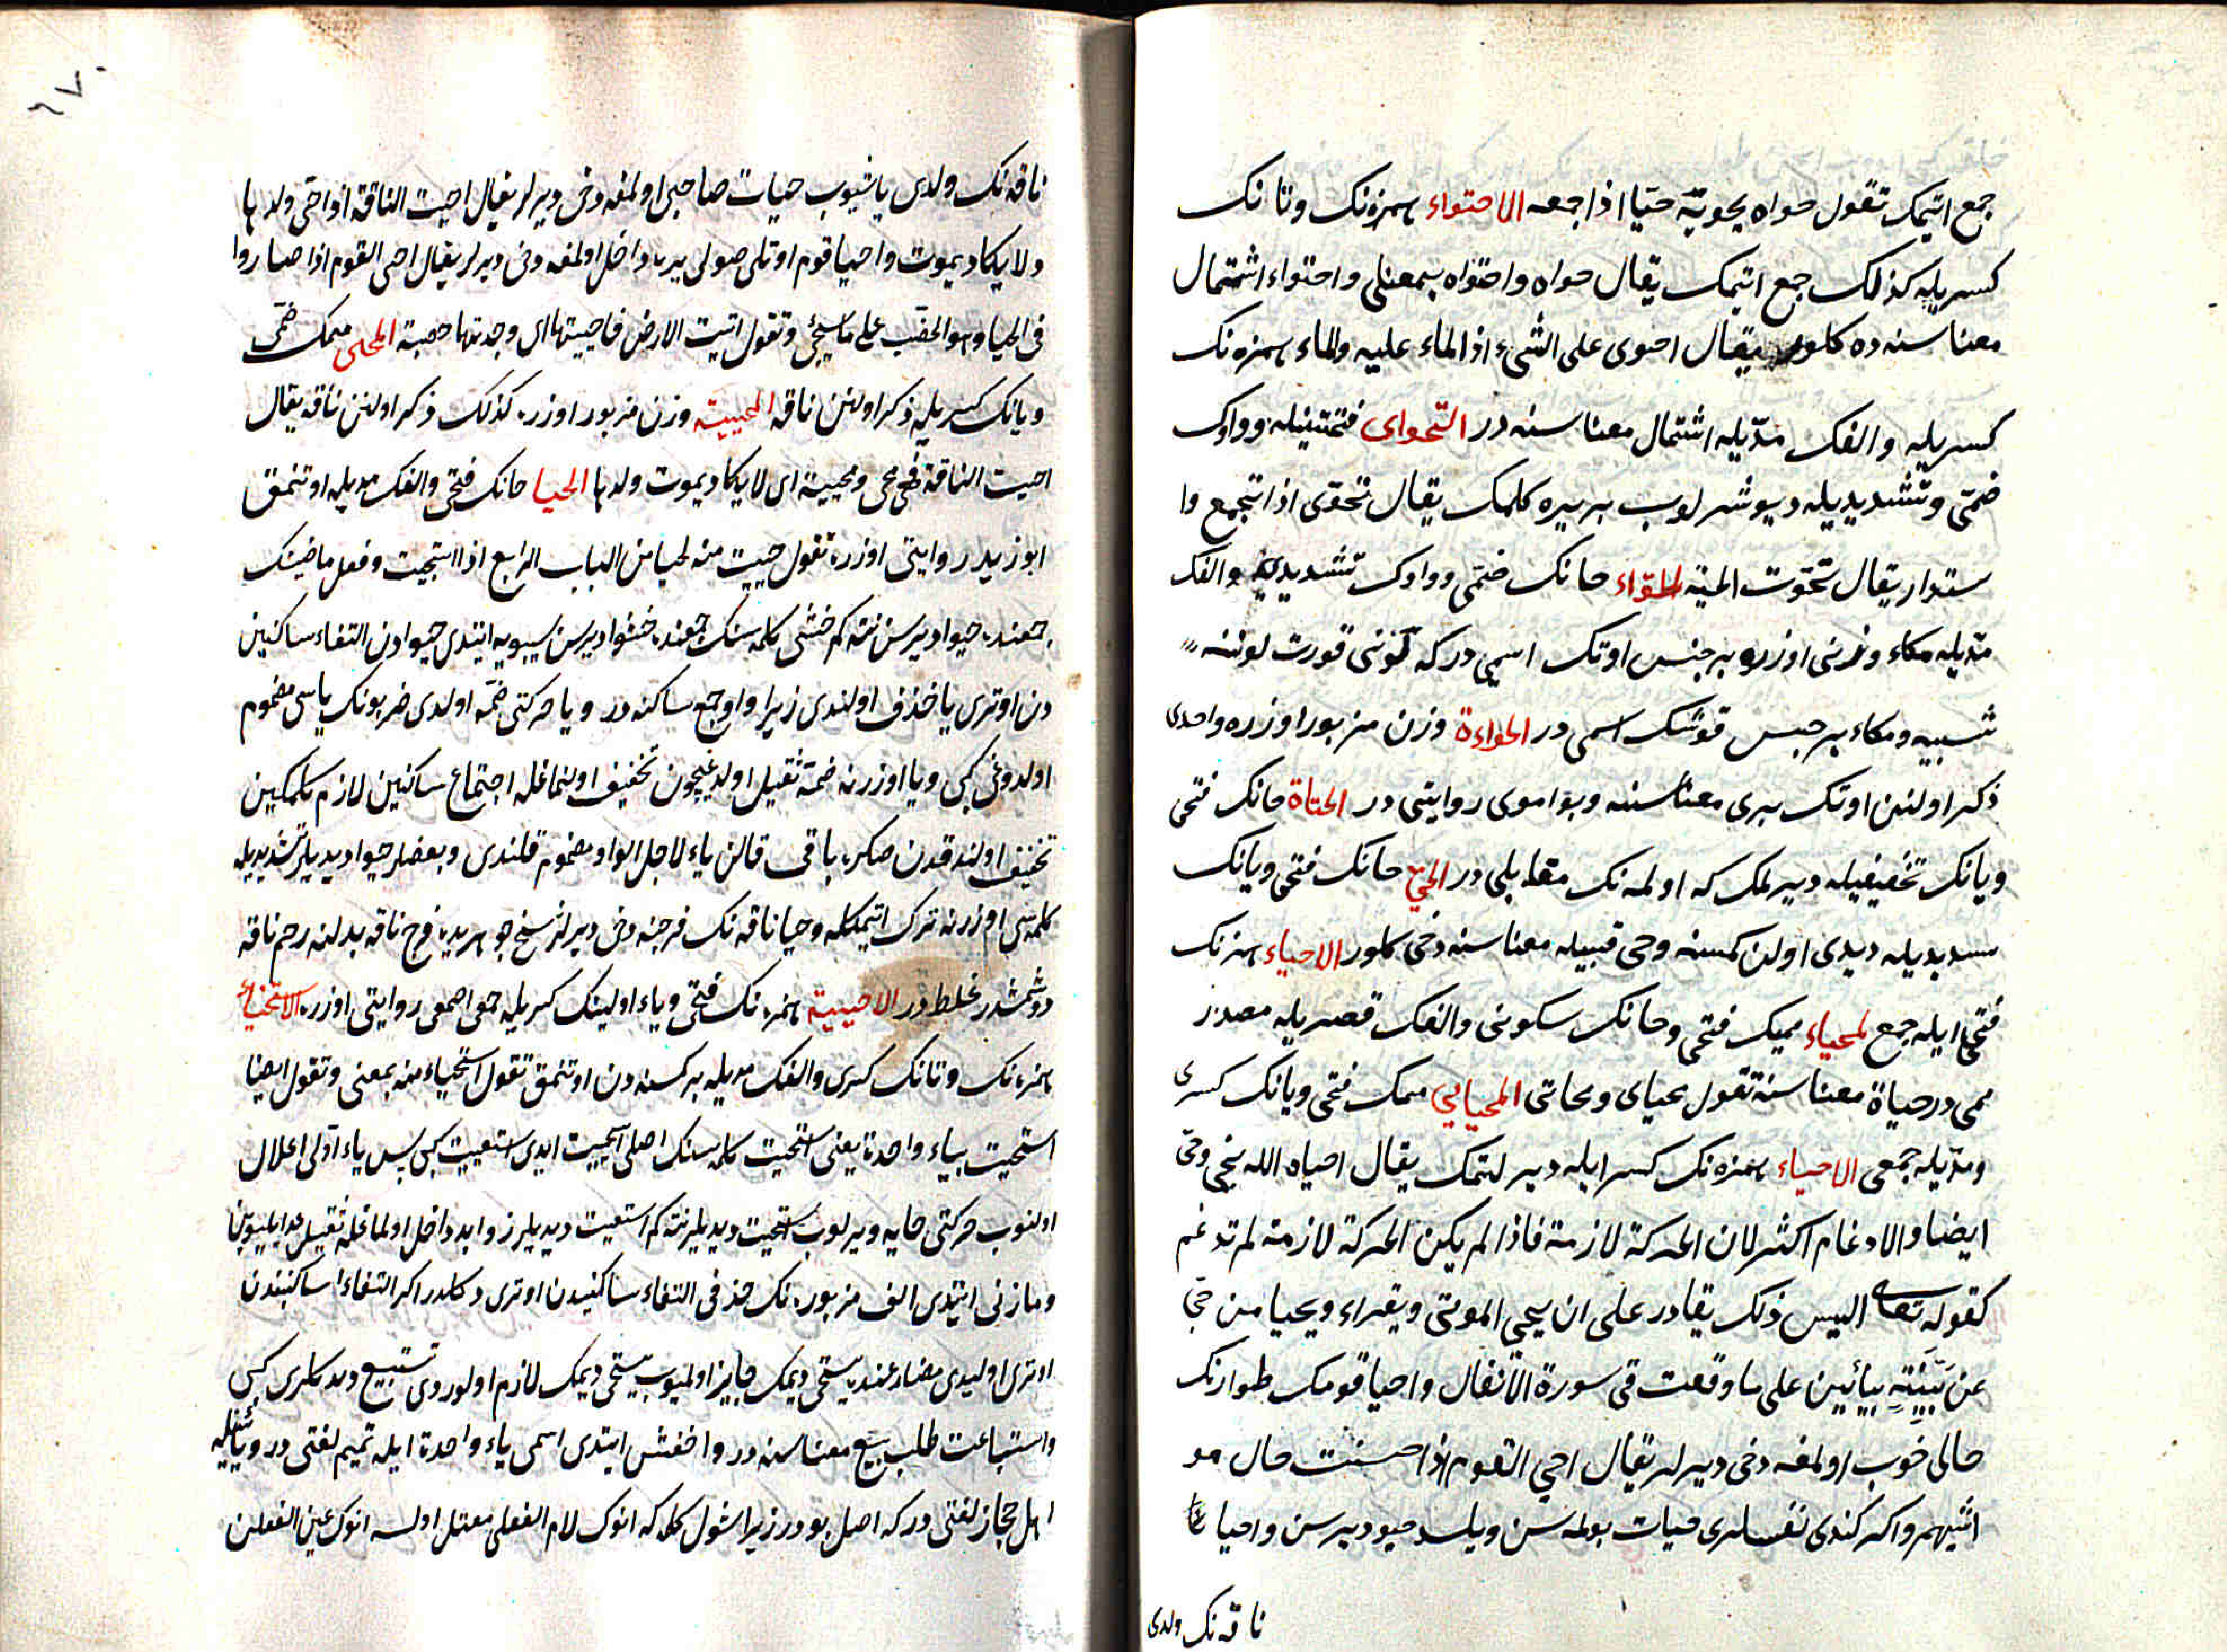 جمع اتیمک تقول حواه یحویه حیّا اذا جمعه الاحتواء همزه‌نک وتانک
کسریله کذلک جمع اتیمک یقال حواه واحتواه بمعنی واحتواء اشتمال
معناسنه ده کلور یقال احتوی علی الشیء اذا الماء علیه والماء همزه‌نک
کسریله والفک مدّیله اشتمال معناسنه در التحوای فتحتینیله وواوک
ضمّی وتشدیدیله دیوشرلوب بربیره کلمک یقال تحوّی اذا تجمع وا
ستدار یقال تحوّت الحیّة الحوّاء حانک ضمّی وواوک تشدیدی والفک
مدّیله مکاء وزنی اوزره بر جنس اوتک اسمی در که لونی قورت لوننه
شبیه ومکاء بر جنس قوشک اسمی در الحواءة وزن مزبور اوزره واحدی
ذکر اولنن اوتک بری معناسنه وبو اموی روایتی در الحیاة حانک فتحی
ویانک تخفیفیله دیرلمک که اولمه‌نک مقابلی در الحیّ حانک فتحی ویانک
تشدیدیله دیدی اولن کمسنه وحی قبیله معناسنه دخی کلور الاحیاء همزه‌نک
فتحی ایله جمع المحیاء میمک فتحی وحانک سکونی والفک قصریله مصدر
میمی در حیاة معناسنه تقول محیای ومماتی المحایی میمک فتحی ویانک کسری
ومدّیله جمعی الاحیاء همزه‌نک کسر ایله دیرلتمک یقال احیاه الله فحیی وحیّ
ایضا والادغام اکثر لان الحرکة لازمة فاذا لم یکن الحرکة لازمة لم تدغم
کقوله تعالی الیس ذلک بقادر علی ان یحیی الموتی ویقراء ویحیا من حیّ
عن بیّنة بیائین علی ما وقعت فی سورة الانفال واحیا قومک طوارنک
حالی خوب اولمغه دخی دیرلر یقال احیی القوم اذا حسنت حال مو
اشیهم واکر کندی نفسلری حیات بولمه‌سن ویلسه حیو دیرسن واحیا
ناقه‌نک ولدی
ناقه‌نک ولدی یاشیوب حیات صاحبی اولمغه دخی دیرلر یقال احیت الناقة اذا احی ولدها
ولا یکاد یموت واحیا قوم اوتلی صولی یره داخل اولمغه دخی دیرلر یقال احی القوم اذا صاروا
فی الحیا وهو الخصب علی ما سیجئ وتقول اتیت الارض فاحییتها ای وجدتها خصبة المحی میمک ضمّی
ویانک کسریله ذکر اولنن ناقه المحییة وزن مزبور اوزره کذلک ذکر اولنن ناقه یقال
احیت الناقة فهی محی ومحییة ای لا یکاد یموت ولدها الحیا حانک فتحی والفک مدیله اوتنمق
ابوزید روایتی اوزره تقول حییت منه احیا من الباب الرابع اذا استحییت وفعل ماضینک
جمعنده حیوا دیرسن نته کم خشی کلمه‌سنک جمعنده خشوا دیرسن سیبویه ایتدی حیوا دن التقاء ساکنین
دن اوتری یا حذف اولندی زیرا واو جمع ساکنه در ویا حرکتی ضمّه اولدی ضربونک یاسی مضموم
اولدوغی کبی ویا اوزرنه ضمّه ثقیل اولدغیچون تخفیف اولنماغله اجتماع ساکنین لازم کلمکین
تخفیف اولندقدن صکره باقی قالن یاء لاجل الواو مضموم قلندی وبعضلر حیوا دیدیلر تشدیدیله
کلمه‌سی اوزرنه ترک اتیمکله وحیا ناقه‌نک فرجنه دخی دیرلر نسخ جوهریده فرج ناقه بدلنه رحم ناقه
دوشمشدر غلط در الاحییة همزه‌نک فتحی ویاء اولینک کسریله جمعی اصمعی روایتی اوزره الاستحیاء
همزه‌نک وتانک کسری والفک مدیله بر کمسنه دن اوتنمق تقول استحیاء منه بمعنی وتقول ایضا
استحیت بیاء واحدة یعنی استحیت کلمه‌سنک اصلی استحییت ایدی استعییت کبی پس یاء اولی اعلال
اولنوب حرکتی حایه ویرلوب استحیت دیدیلر نته کم استعیت دیدیلر زواید داخل اولماغله ثقیل عد ایلیوبن
ومازنی ایتدی الف مزبوره‌نک حذفی التقاء ساکنیدن اوتری دکلدر اکر التقاء ساکنیندن
اوتری اولیدی مضارعنده یستحی دیمک جایز اولمیوب یستحیی دیمک لازم اولوردی تستبیع دیدکلری کبی
واستباعت طلب بیع معناسنه در واخفش ایتدی اسمی یاء واحدة ایله تمیم لغتی در ویائینله
اهل حجاز لغتی در که اصل بو در زیرا شول کلمه که انوک لام الفعلی معتل اولسه انوک عین الفعلن